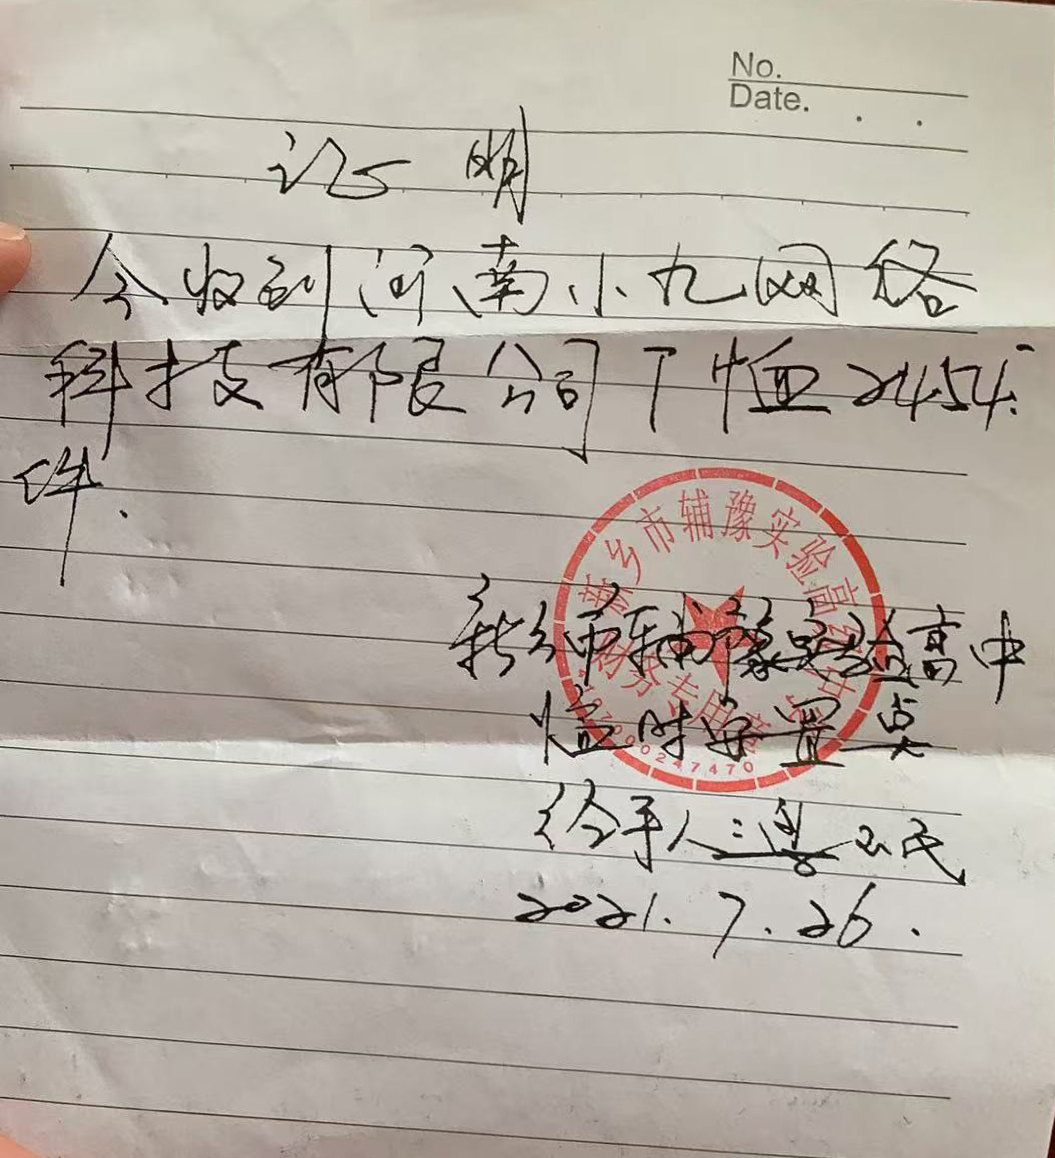 No.
Date.
证明
今收到河南小九网络
科技有限公司T恤2454
件.
新乡市辅豫实验高级中学
财务专用章
新乡市辅豫实验高中
临时安置点
经手人:
2021.7.26.